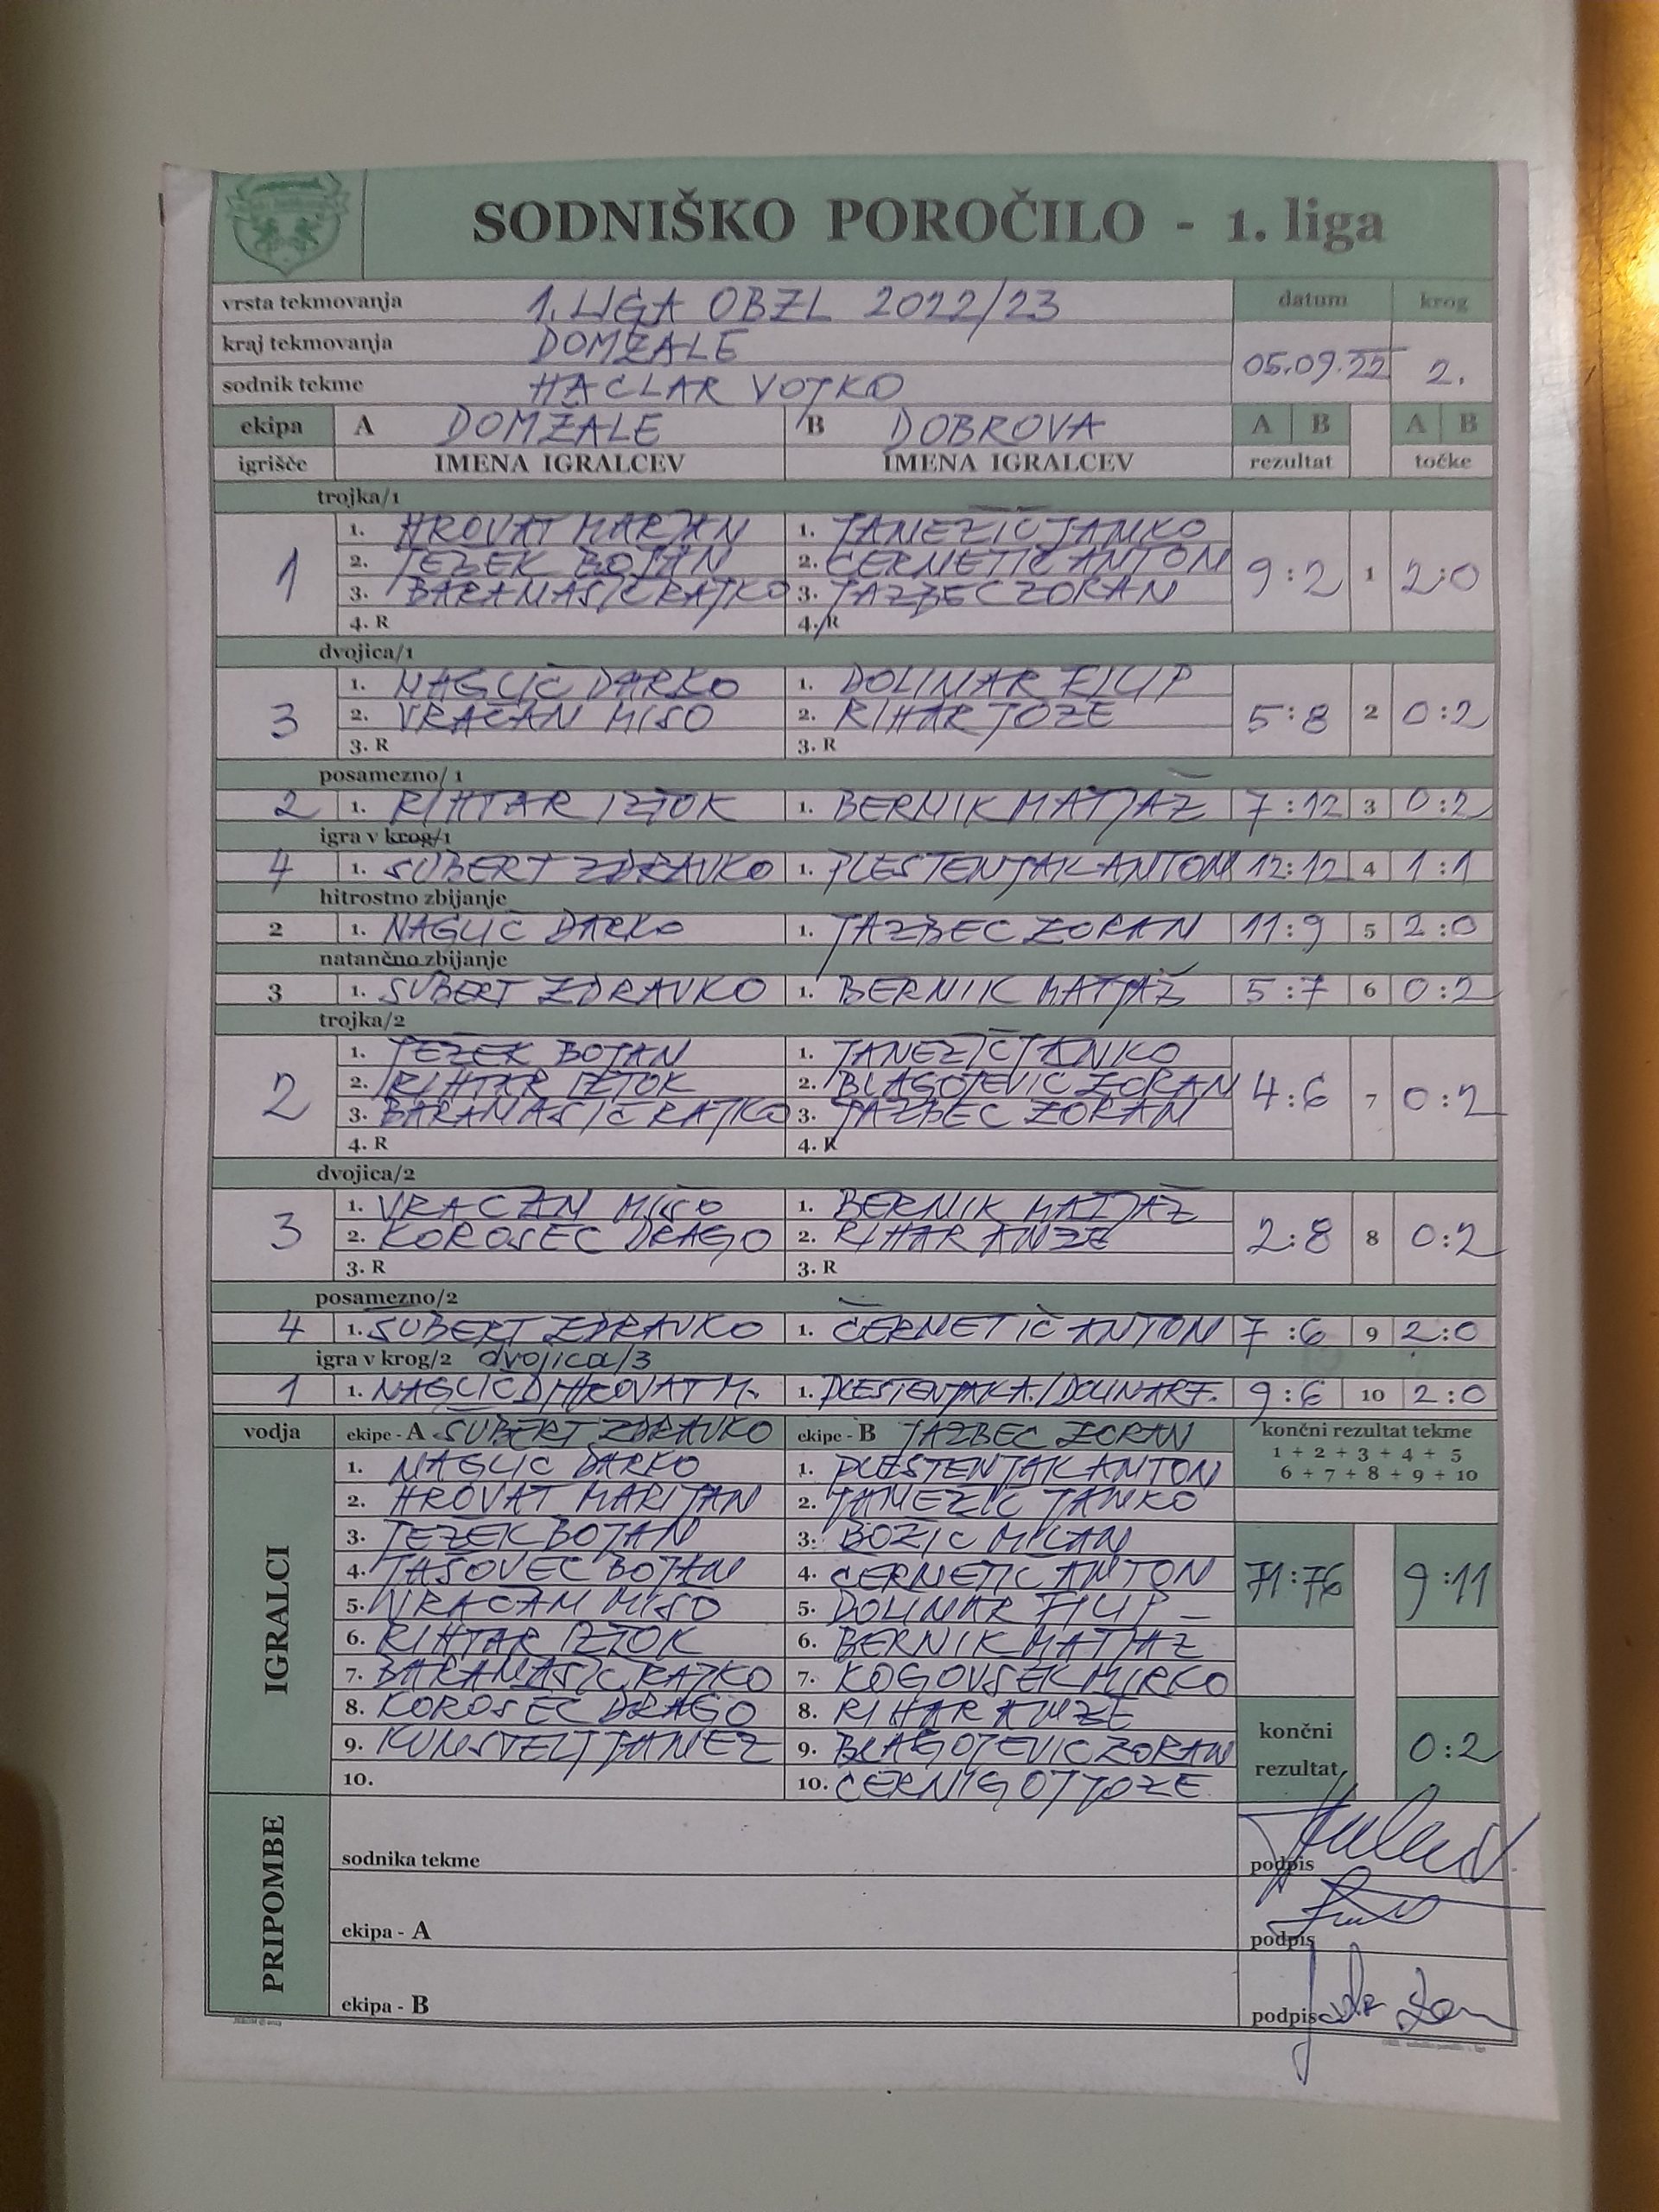 SODNIŠKO POROČILO - 1. liga
vrsta tekmovanja 1. LIGA OBZL 2022/23 datum krog
kraj tekmovanja DOMŽALE 05.09.22 2.
sodnik tekme HACLAR VOJKO
ekipa A DOMŽALE B DOBROVA A B A B
igrišče IMENA IGRALCEV IMENA IGRALCEV rezultat točke
trojka/1
1. HROVAT MARJAN 1. JANEŽIČ JANKO
2. JEZEK BOJAN 2. ČERNETIČ ANTON
1 9:2 1 2:0
3. BARAMASIC RATKO 3. JAZBEC ZORAN
4. R 4. R
dvojica/1
1. NAGLIČ DARKO 1. DOLINAR FILIP
3 2. VRACAN MISO 2. RIHAR JOZE 5:8 2 0:2
3. R 3. R
posamezno/1
2 1. RIHTAR IZTOK 1. BERNIK MATJAŽ 7:12 3 0:2
igra v krog/1
4 1. SUBERT ZDRAVKO 1. PLESTENJAK ANTON 12:12 4 1:1
hitrostno zbijanje
2 1. NAGLIČ DARKO 1. JAZBEC ZORAN 11:9 5 2:0
natančno zbijanje
3 1. SUBERT ZDRAVKO 1. BERNIK MATJAŽ 5:7 6 0:2
trojka/2
1. JEZEK BOJAN 1. JANEZIČ JANKO
2. RIHTAR IZTOK 2. BLAGOJEVIC ZORAN
2 4:6 7 0:2
3. BARAMASIČ RATKO 3. JAZBEC ZORAN
4. R 4. R
dvojica/2
1. VRACAN MIŠO 1. BERNIK MATJAŽ
3 2. KOROSEC DRAGO 2. RIHAR ANZE 2:8 8 0:2
3. R 3. R
posamezno/2
4 1. SUBERT ZDRAVKO 1. ČERNETIČ ANTON 7:6 9 2:0
igra v krog/2 dvojica/3
1 1. NAGLIČ D/HROVAT M. 1. PLESTENJAK A./DOLINAR F. 9:6 10 2:0
vodja ekipe - A SUBERT ZDRAVKO ekipe - B JAZBEC ZORAN končni rezultat tekme
1 + 2 + 3 + 4 + 5
6 + 7 + 8 + 9 + 10
IGRALCI
1. NAGLIC DARKO 1. PLESTENJAK ANTON
2. HROVAT MARIJAN 2. JANEZIC JANKO
3. JEZEK BOJAN 3. BOZIC MILAN
4. JASOVEC BOJAN 4. CERNETIC ANTON
71:76 9:11
5. VRACAN MISO 5. DOLINAR FILIP
6. RIHTAR IZTOK 6. BERNIK MATJAZ
7. BARAMASIC RATKO 7. KOGOVSEK MIRKO
8. KOROSEC DRAGO 8. RIHAR ANZE
9. KUNSTELJ JANEZ 9. BLAGOJEVIC ZORAN
10. 10. CERNIGOJ JOZE
končni rezultat 0:2
PRIPOMBE
sodnika tekme podpis
ekipa - A podpis
ekipa - B podpis